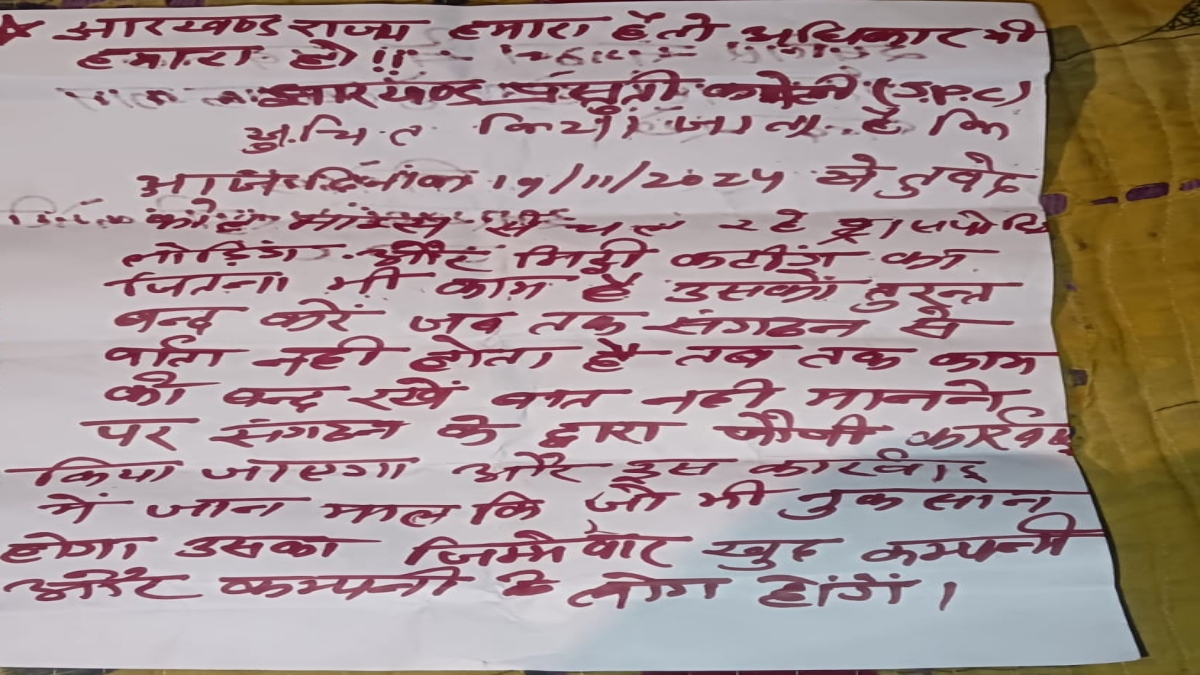 ★ झारखण्ड राज्य हमारा हैं तो अधिकार भी
हमारा हो!!
झारखण्ड प्रस्तुती कमेटी (J.P.C)
सुचित किया जाता है कि
आज दिनांक 19/11/2024 से
कोल माइन्स से चल रहे
लोडिंग और मिट्टी कटींग का
जितना भी काम है उसको तुरन्त
बन्द करें जब तक संगठन से
र्वाता नही होता है तब तक काम
को बन्द रखें बात नही मानने
पर संगठन के द्वारा फौजी
किया जाएगा और इस कारर्वाइ
में जान माल कि जो भी नुकसान
होगा उसका जिम्मेवार खुद कम्पनी
और कम्पनी के लोग होंगें।